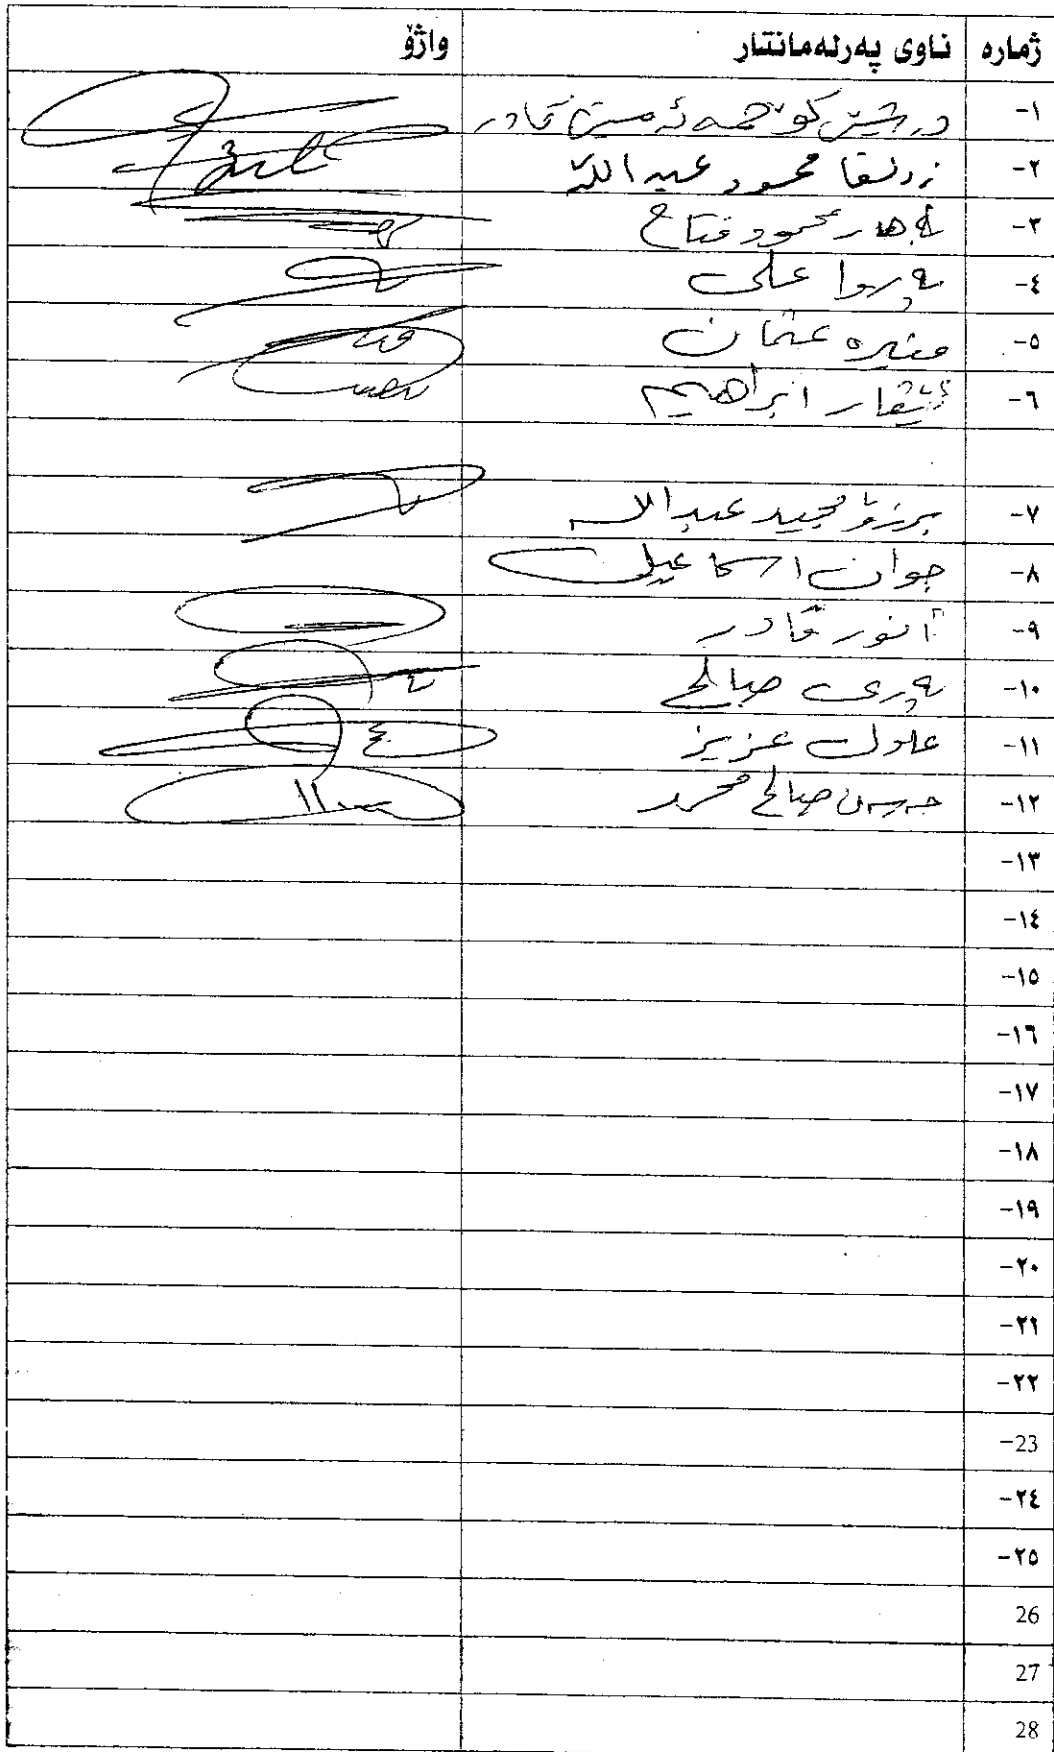 ژمارە ناوی پەرلەمانتار واژۆ
١-
٢- زولفا محمود عبداللە
٣- بەهار محمود فتاح
٤- پەروا علی
٥- منیرە عثمان
٦- ئێڤار ابراهیم
٧- برزۆ مجید عبداللە
٨- جوان اسماعیل
٩- أنور قادر
١٠- پەری صالح
١١- عزیز
١٢- صالح محمد
١٣-
١٤-
١٥-
١٦-
١٧-
١٨-
١٩-
٢٠-
٢١-
٢٢-
23-
٢٤-
٢٥-
26
27
28